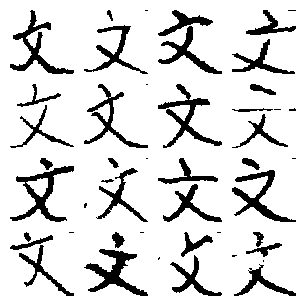 文文文文
文文文文
文文文文
文文文文